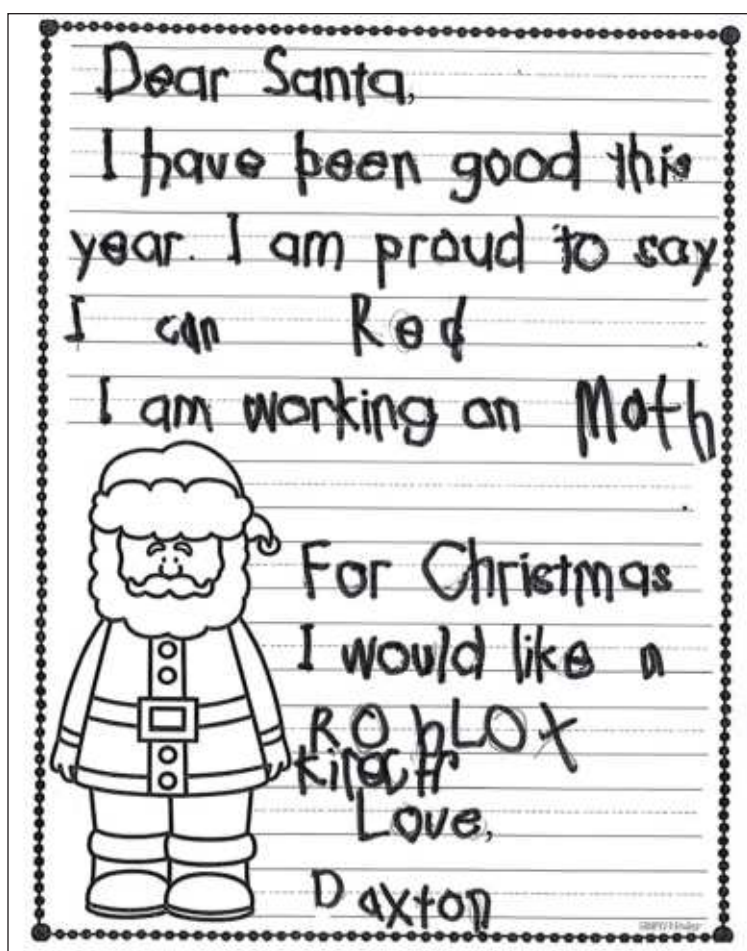 Dear Santa,
I have been good this
year. I am proud to say
I can Red .
I am working on Math
.
For Christmas
I would like a
RObLOX
Love,
Daxton